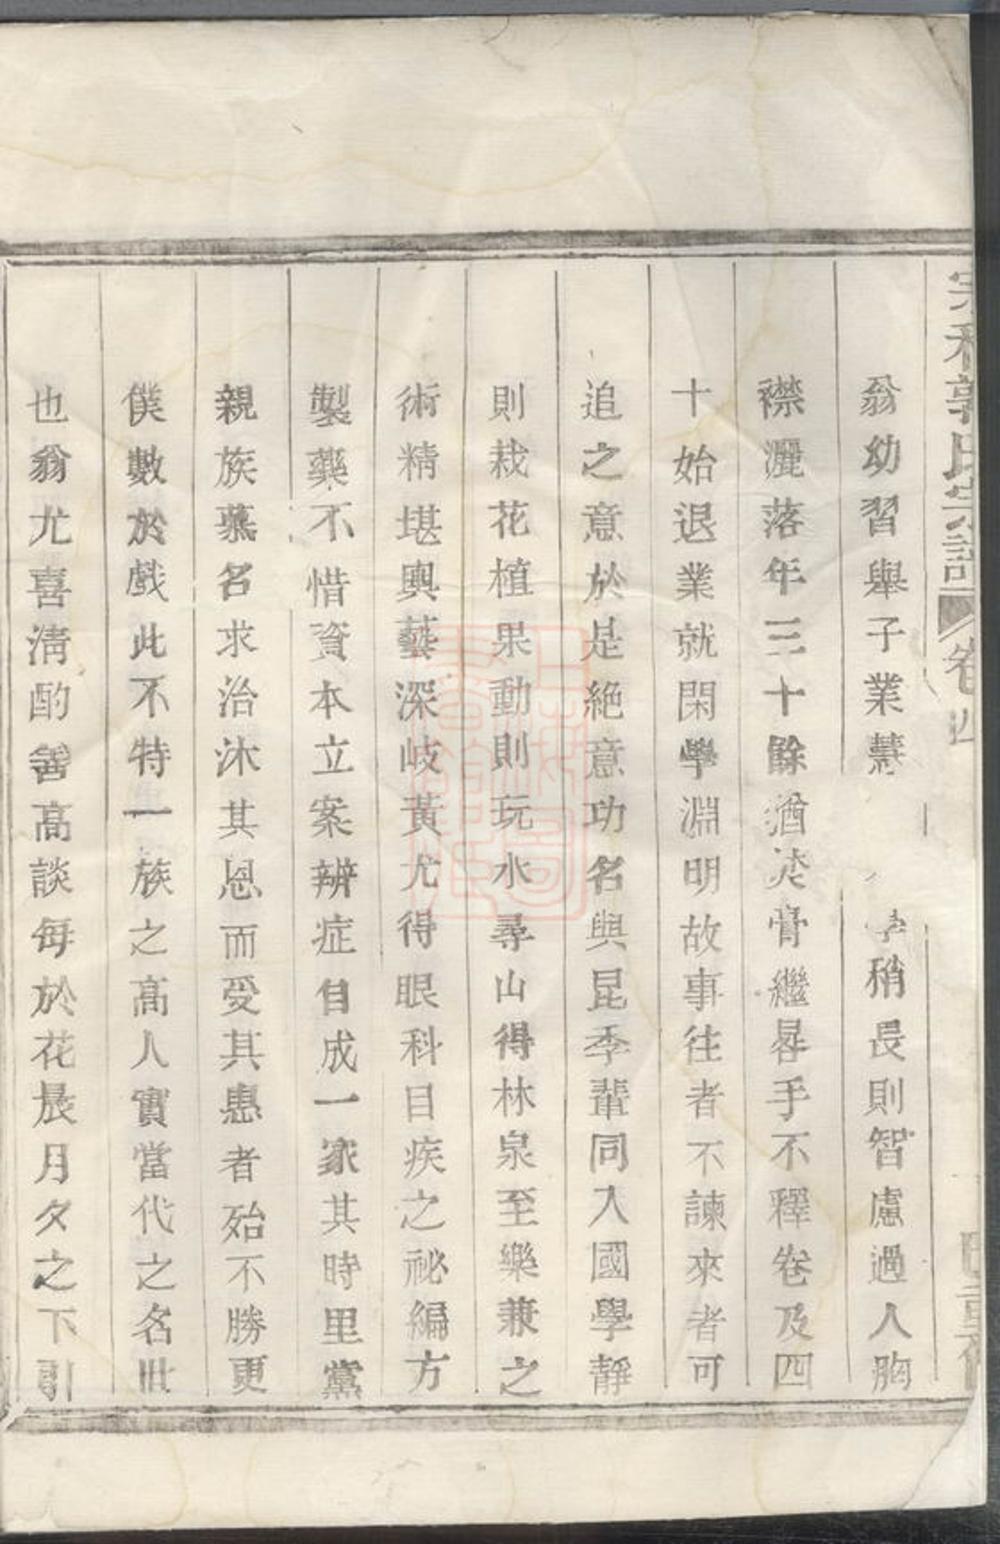 郭氏宗譜 卷四
翁幼習舉子業慧 學稍長則智慮過人胸
襟灑落年三十餘猶焚膏繼晷手不釋卷及四
十始退業就閑學淵明故事往者不諫來者可
追之意於是絕意功名與昆季輩同入國學靜
則栽花植果動則玩水尋山得林泉至樂兼之
術精堪輿藝深岐黃尤得眼科目疾之祕編方
製藥不惜資本立案辨症自成一家其時里黨
親族慕名求治沐其恩而受其惠者殆不勝更
僕數於戲此不特一族之高人實當代之名世
也翁尤喜清酌善高談每於花晨月夕之下引